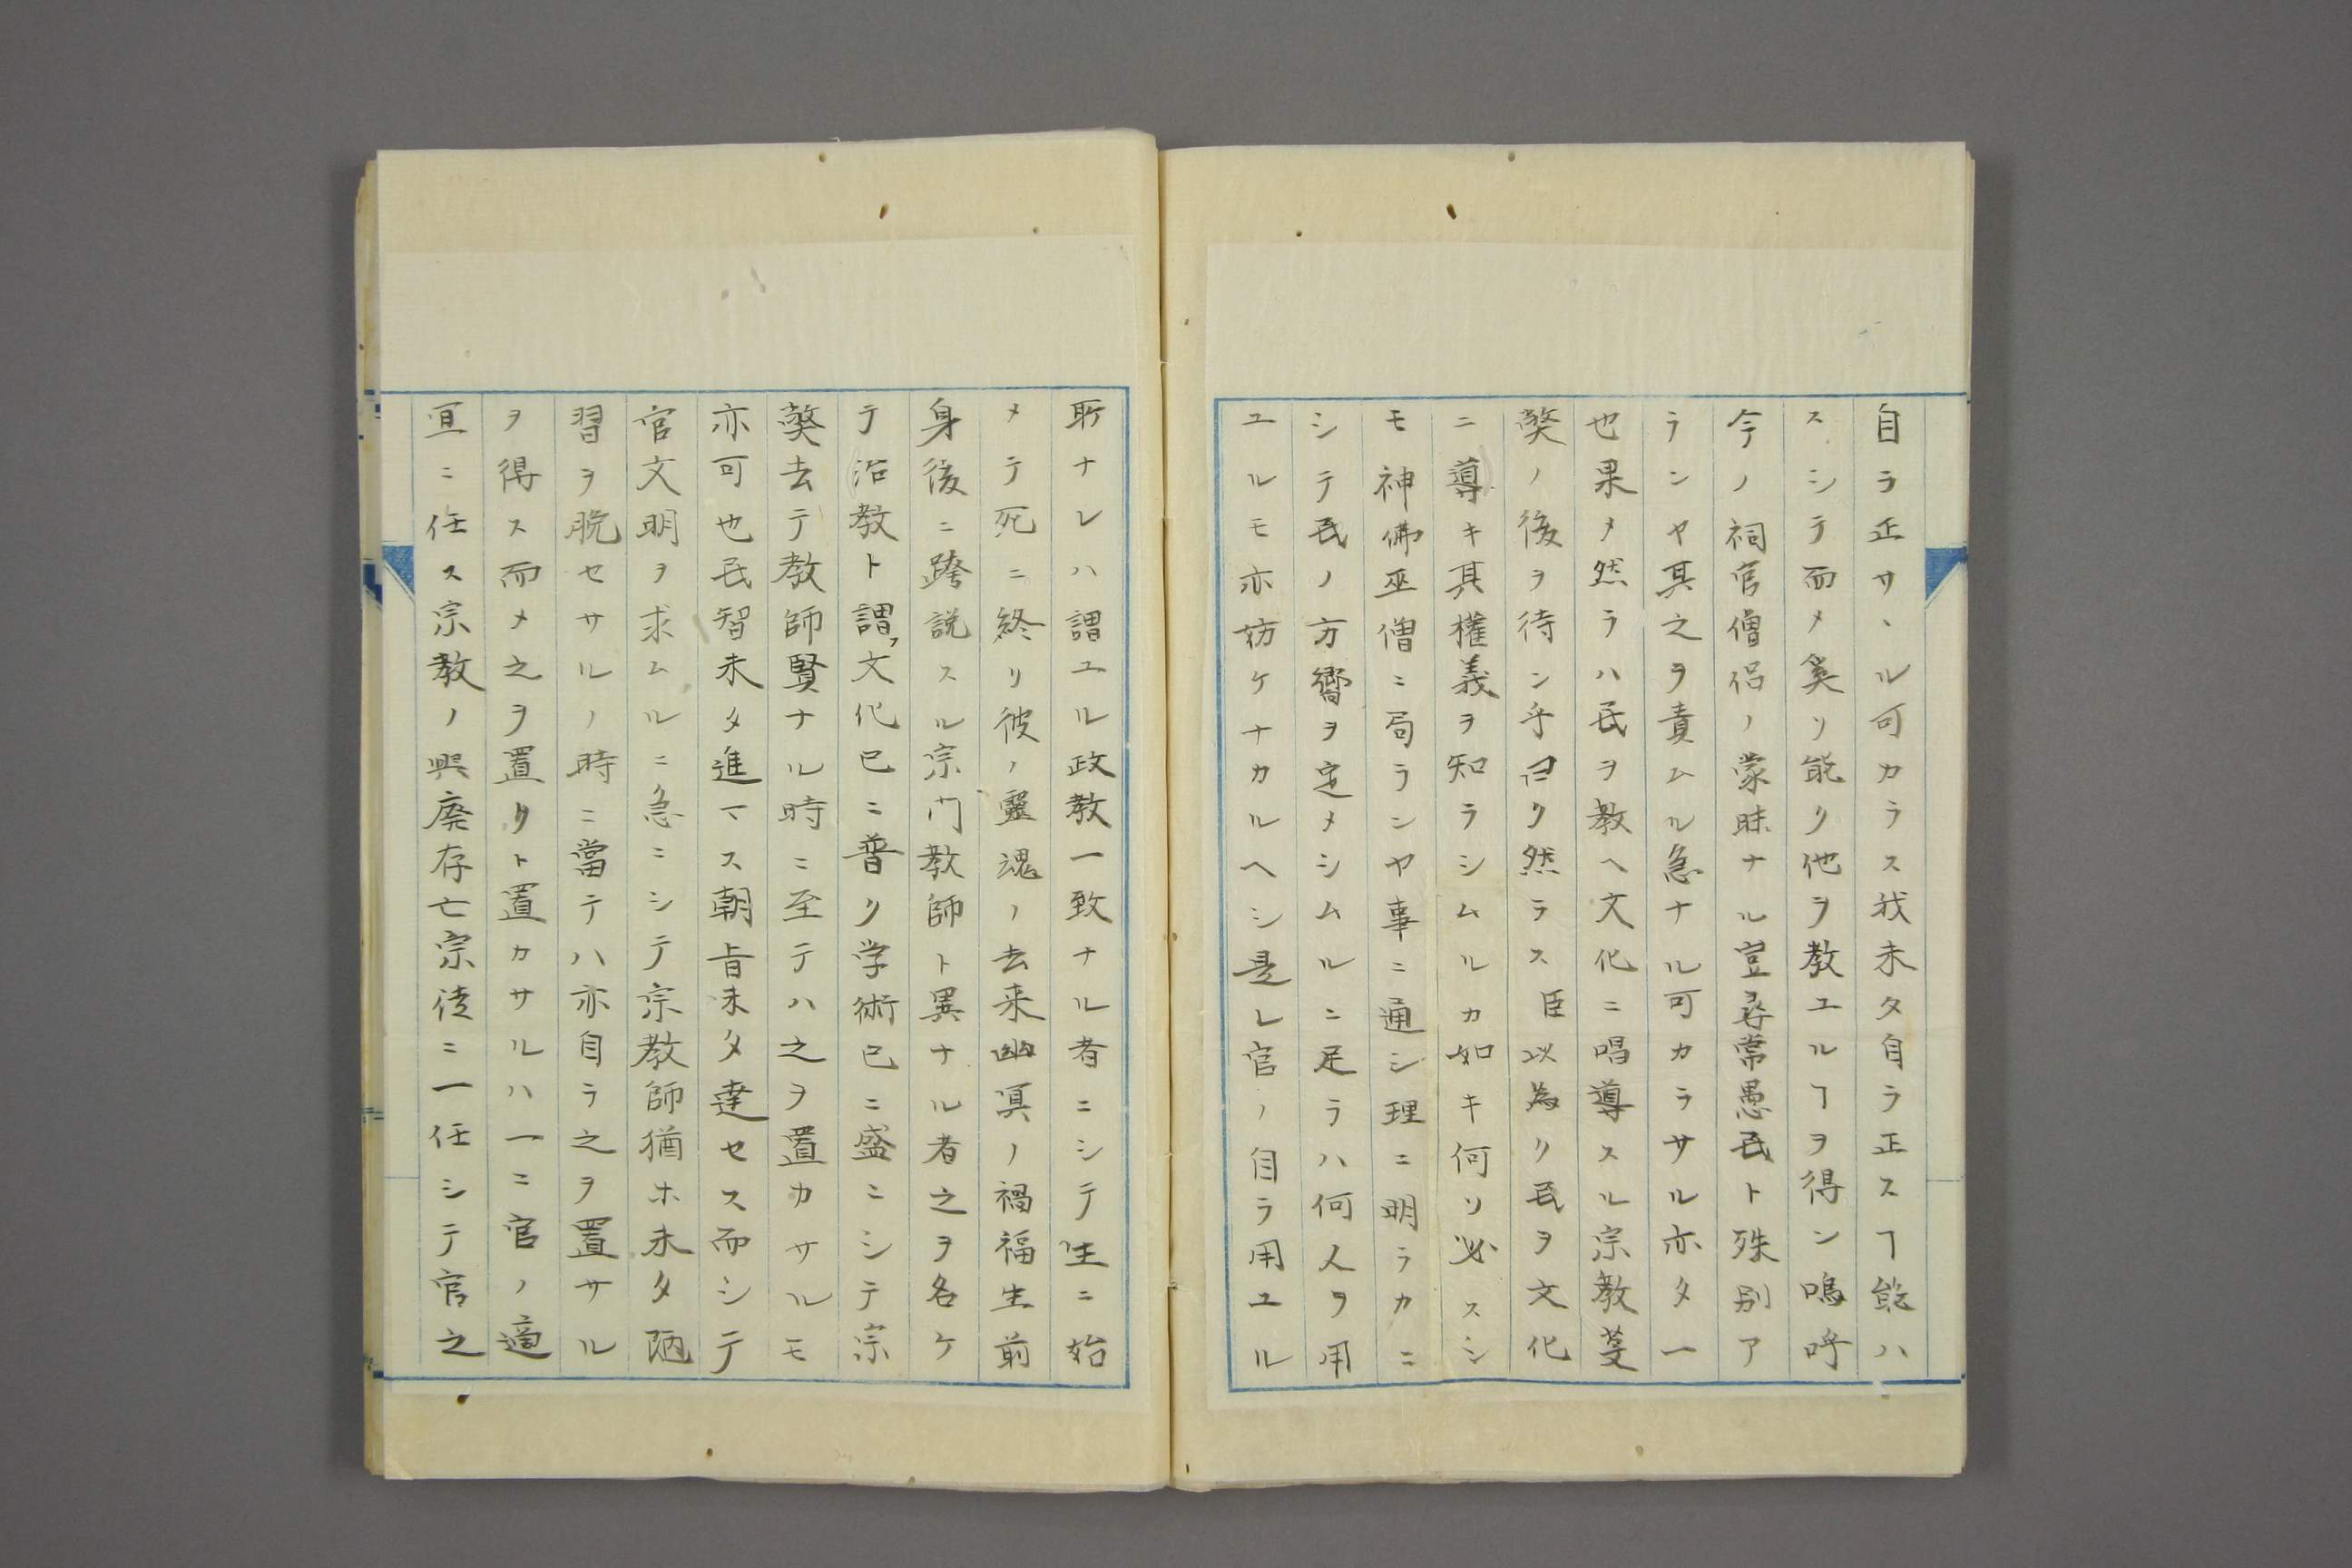 自ラ正サヽル可カラス我未タ自ラ正スヿ能ハ
スシテ而メ奚ソ能ク他ヲ教ユルヿヲ得ン嗚呼
今ノ祠官僧侶ノ蒙昧ナル豈尋常愚民ト殊別ア
ランヤ其之ヲ責ムル急ナル可カラサル亦タ一
也果メ然ラハ民ヲ教ヘ文化ニ唱導スル宗教蔓
ノ後ヲ待ン乎曰ク然ラス臣以為ク民ヲ文化
ニ導キ其權義ヲ知ラシムルカ如キ何ソ必スシ
モ神佛巫僧ニ局ランヤ事ニ通シ理ニ明ラカニ
シテ民ノ方嚮ヲ定メシムルニ足ラハ何人ヲ用
ユルモ亦妨ケナカルヘシ是レ官ノ自ラ用ユル
所ナレハ謂ユル政教一致ナル者ニシテ生ニ始
メテ死ニ終リ彼ノ靈魂ノ去来幽冥ノ禍福生前
身後ニ跨説スル宗門教師ト異ナル者之ヲ名ケ
テ治教ト謂フ文化已ニ普ク学術已ニ盛ニシテ宗
去テ教師賢ナル時ニ至テハ之ヲ置カサルモ
亦可也民智未タ進マス朝旨未タ達セス而シテ
官文明ヲ求ムルニ急ニシテ宗教師猶ホ未タ陋
習ヲ脱セサルノ時ニ當テハ亦自ラ之ヲ置サル
ヲ得ス而メ之ヲ置クト置カサルハ一ニ官ノ適
宜ニ任ス宗教ノ興廃存亡宗徒ニ一任シテ官之